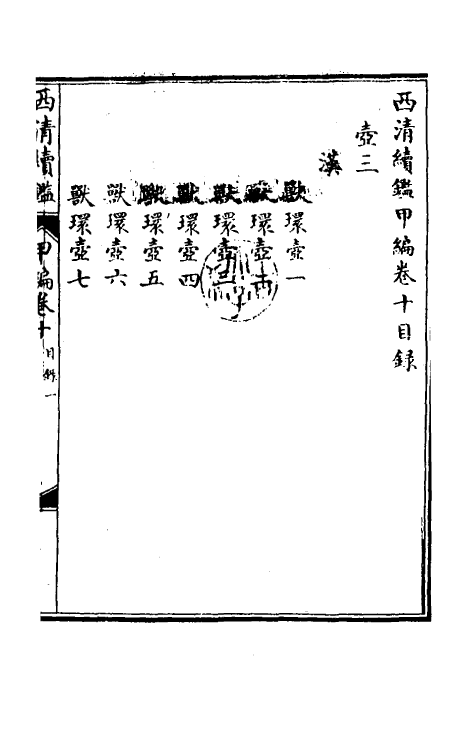 西清續鑑甲編卷十目録
壺三
漢
獸環壺一
獸環壺二
獸環壺三
獸環壺四
獸環壺五
獸環壺六
獸環壺七
西清續鑑 甲編卷十 目録 一